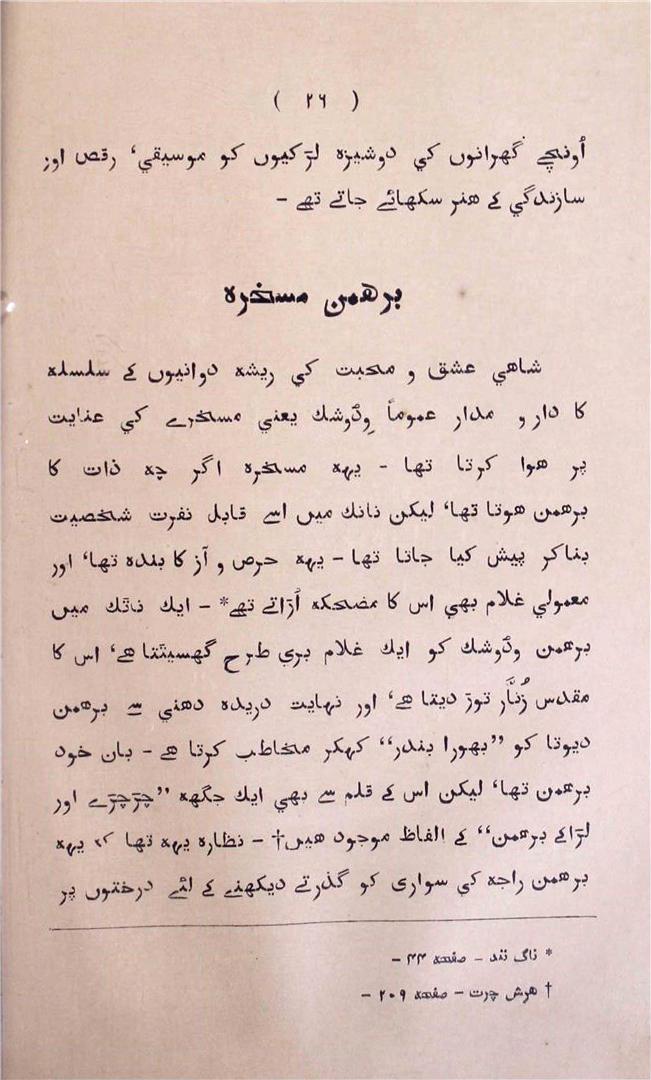 ( ۲۶ )
اُونچے گھرانوں کي دوشیزہ لڑکیوں کو موسیقي، رقص اور
سازندگي کے ھنر سکھائے جاتے تھے -
برھمن مسخرہ
شاھي عشق و محبت کي ریشہ دوانیوں کے سلسلہ
کا دار و مدار عموماً وِدُوشك یعني مسخرے کي عنایت
پر ھوا کرتا تھا - یہہ مسخرہ اگر چہ ذات کا
برھمن ھوتا تھا، لیکن ناٹك میں اسے قابل نفرت شخصیت
بناکر پیش کیا جاتا تھا - یہہ حرص و آز کا بندہ تھا، اور
معمولي غلام بھي اس کا مضحکہ اُڑاتے تھے* - ایك ناٹك میں
برھمن وِدُوشك کو ایك غلام بري طرح گھسیٹتا ھے، اس کا
مقدس زُنَّار توڑ دیتا ھے، اور نہایت دریدہ دھني سے برھمن
دیوتا کو ”بھورا بندر“ کہکر مخاطب کرتا ھے - بان خود
برھمن تھا، لیکن اس کے قلم سے بھي ایك جگھہ ”چڑچڑے اور
لڑاکے برھمن“ کے الفاظ موجود ھیں† - نظارہ یہہ تھا کہ یہہ
برھمن راجہ کي سواری کو گذرتے دیکھنے کے لئے درختوں پر
* ناگ نند - صفحہ ۴۴ -
† ھرش چرت - صفحہ ۲۰۹ -